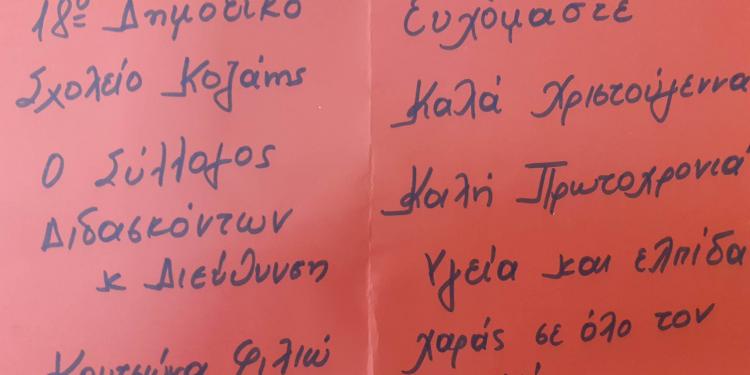 18ο Δημοτικό
Σχολείο Κοζάνης
Ο Σύλλογος
Διδασκόντων
κ Διεύθυνση
Φιλιώ
Ευχόμαστε
Καλά Χριστούγεννα
Καλή Πρωτοχρονιά
Υγεία και ελπίδα
χαράς σε όλο τον